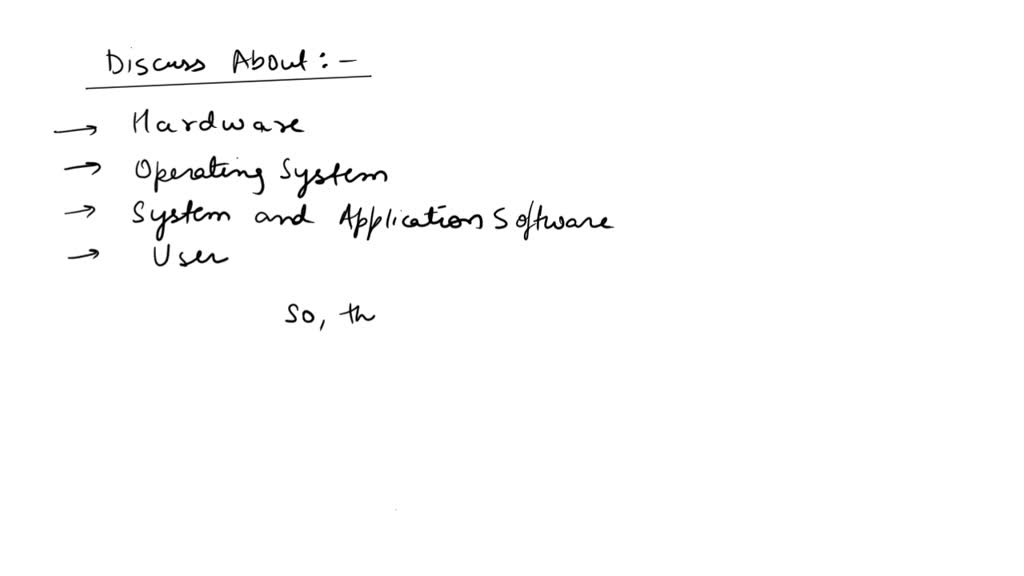 Discuss About :-
→ Hardware
→ Operating System
→ System and Application Software
→ User
So, th